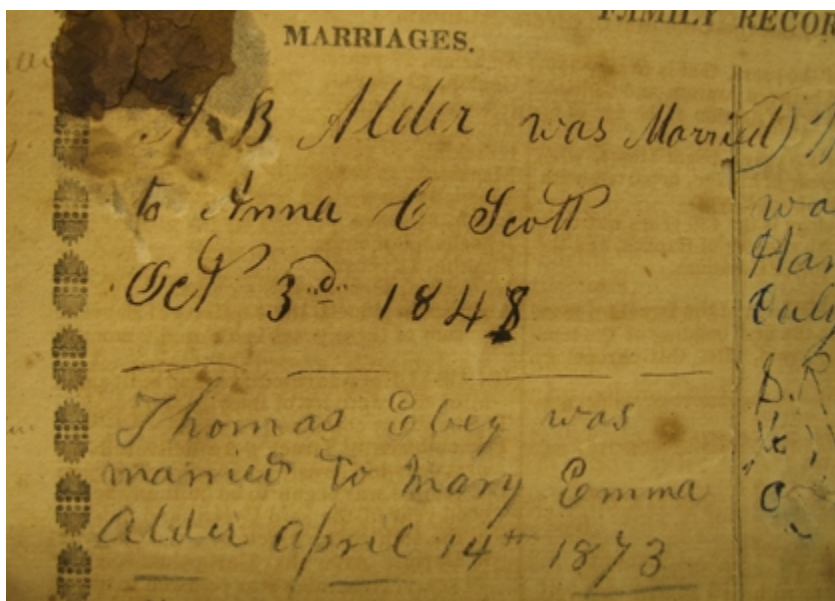 FAMILY RECOR
MARRIAGES.
B Alder was Married
to Anna C Scott
Oct 3rd 1848
Thomas Ebey was
married to Mary Emma
Alder April 14th 1873
wa
Har